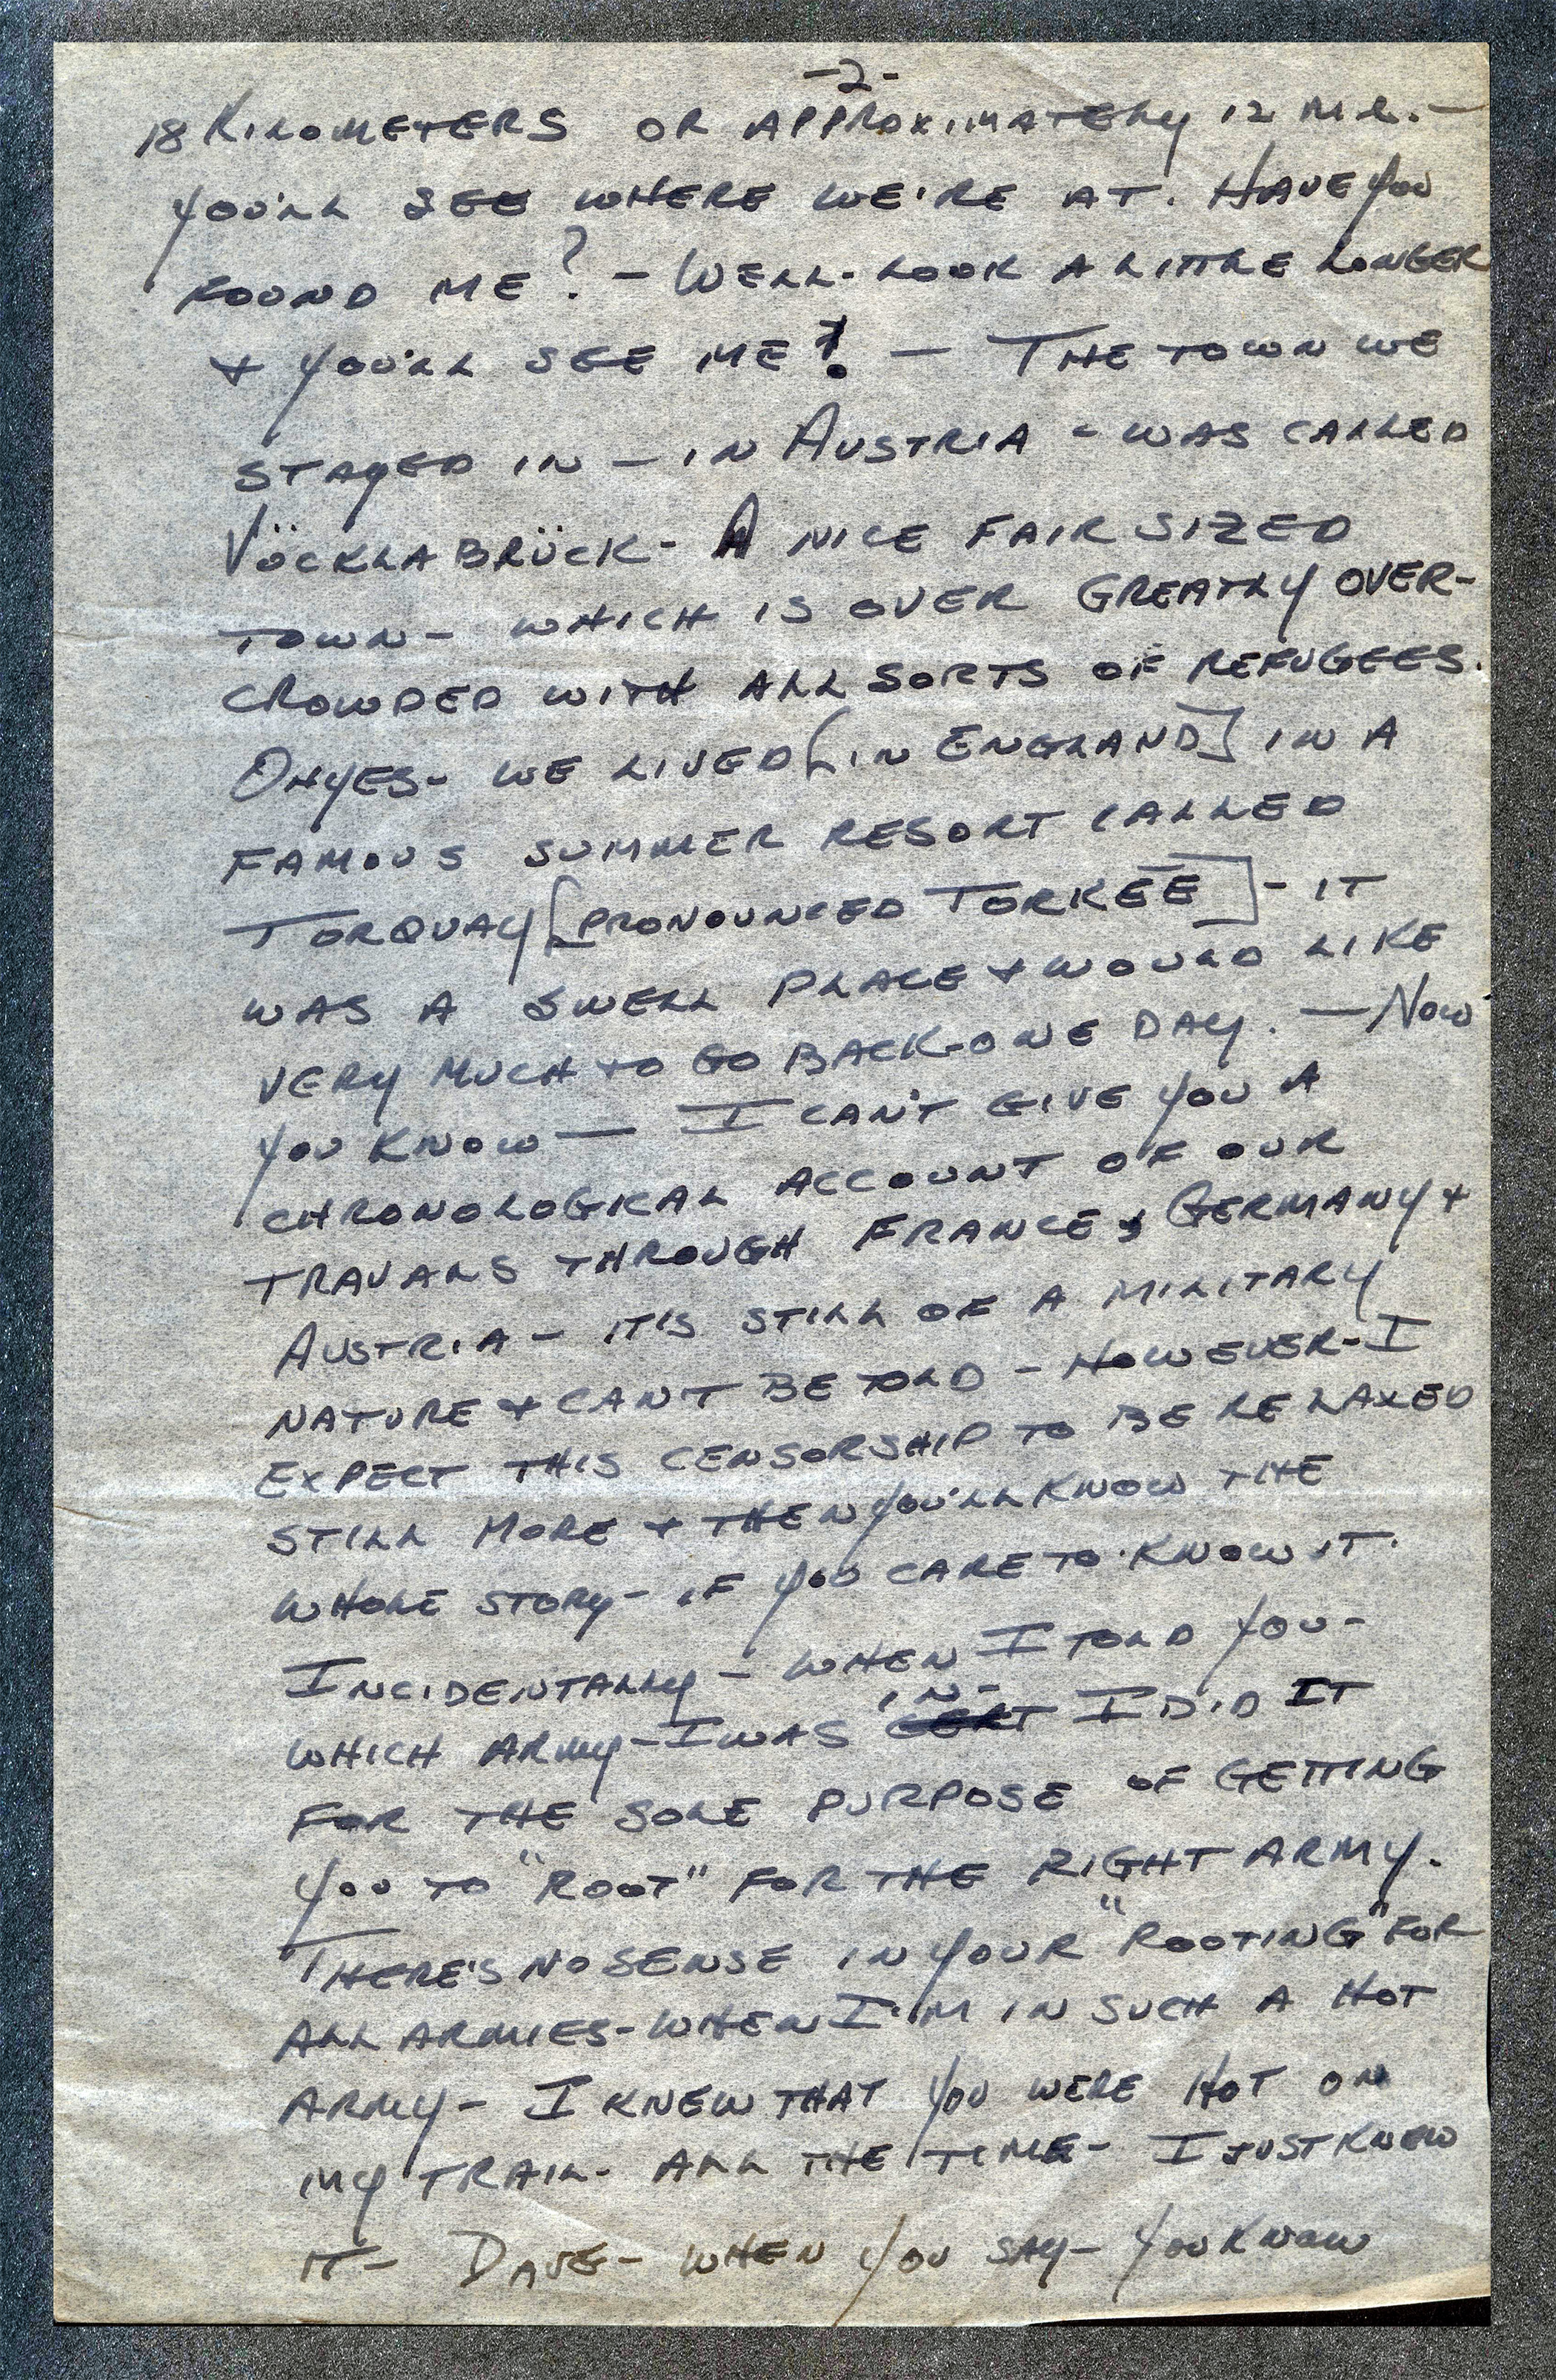 -2-
18 KILOMETERS OR APPROXIMATELY 12 MI. -
YOU'LL SEE WHERE WE'RE AT. HAVE YOU
FOUND ME? - WELL - LOOK A LITTLE LONGER
+ YOU'LL SEE ME! - THE TOWN WE
STAYED IN - IN AUSTRIA - WAS CALLED
VÖCKLABRÜCK - A NICE FAIR SIZED
TOWN - WHICH IS OVER GREATLY OVER-
CROWDED WITH ALL SORTS OF REFUGEES.
OH YES - WE LIVED [IN ENGLAND] IN A
FAMOUS SUMMER RESORT CALLED
TORQUAY [PRONOUNCED TORKEE] - IT
WAS A SWELL PLACE + WOULD LIKE
VERY MUCH TO GO BACK - ONE DAY. - NOW
YOU KNOW - I CAN'T GIVE YOU A
CHRONOLOGICAL ACCOUNT OF OUR
TRAVALS THROUGH FRANCE, GERMANY +
AUSTRIA - IT IS STILL OF A MILITARY
NATURE + CAN'T BE TOLD - HOWEVER - I
EXPECT THIS CENSORSHIP TO BE RELAXED
STILL MORE + THEN YOU'LL KNOW THE
WHOLE STORY - IF YOU CARE TO KNOW IT.
INCIDENTALLY - WHEN I TOLD YOU -
WHICH ARMY - I WAS IN - I DID IT
FOR THE SOLE PURPOSE OF GETTING
YOU TO "ROOT" FOR THE RIGHT ARMY.
THERE'S NO SENSE IN YOUR "ROOTING" FOR
ALL ARMIES - WHEN I'M IN SUCH A HOT
ARMY - I KNEW THAT YOU WERE HOT ON
MY TRAIL - ALL THE TIME - I JUST KNEW
IT - DAVE - WHEN YOU SAY - YOU KNOW